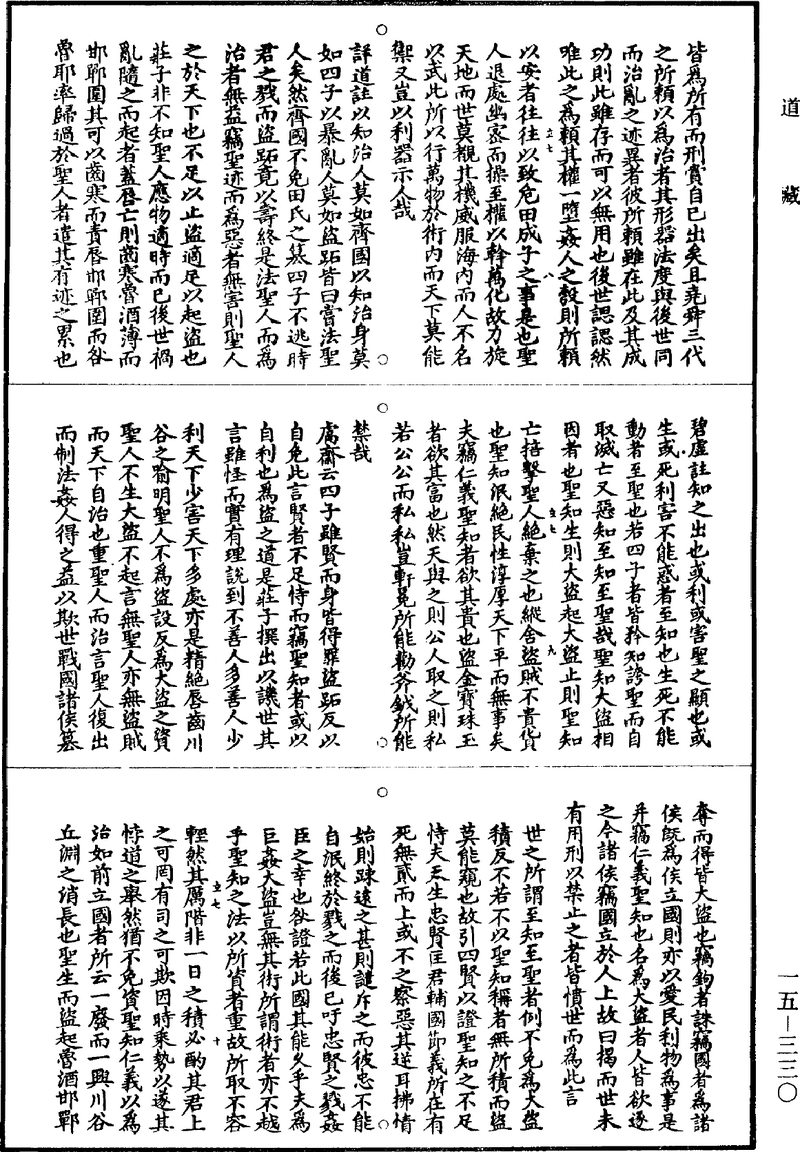 道藏
皆為所有而刑賞自己出矣且堯舜三代
之所賴以為治者其形器法度與後世同
而治亂之迹異者彼所賴雖在此及其成
功則此雖存而可以無用也後世諰諰然
唯此之為賴其權一墮姦人之彀則所賴
以安者往往以致危田成子之事是也聖
人退處幽密而操至權以斡萬化故力旋
天地而世莫覩其機威服海內而人不名
以武此所以行萬物於術內而天下莫能
禦又豈以利器示人哉
詳道註以知治人莫如齊國以知治身莫
如四子以暴亂人莫如盜跖皆曰嘗法聖
人矣然齊國不免田氏之簒四子不逃時
君之戮而盜跖竟以壽終是法聖人而為
治者無益竊聖迹而為惡者無害則聖人
之於天下也不足以止盜適足以起盜也
莊子非不知聖人應物適時而已後世禍
亂隨之而起者蓋唇亡則齒寒魯酒薄而
邯鄲圍其可以齒寒而責唇邯鄲圍而咎
魯耶率歸過於聖人者遣其有迹之累也
碧虛註知之出也或利或害聖之顯也或
生或死利害不能惑者至知也生死不能
動者至聖也若四子者皆矜知誇聖而自
取滅亡又惡知至知至聖哉聖知大盜相
因者也聖知生則大盜起大盜止則聖知
亡掊擊聖人絕棄之也縱舍盜賊不貴貨
也聖知泯絕民性淳厚天下平而無事矣
夫竊仁義聖知者欲其貴也盜金寶珠玉
者欲其富也然天與之則公人取之則私
若公公而私私豈軒冕所能勸斧鉞所能
禁哉
鬳齋云四子雖賢而身皆得罪盜跖反以
自免此言賢者不足恃而竊聖知者或以
自利也為盜之道是莊子撰出以譏世其
言雖怪而實有理說到不善人多善人少
利天下少害天下多處亦是精絕唇齒川
谷之喻明聖人不為盜設反為大盜之資
聖人不生大盜不起言無聖人亦無盜賊
而天下自治也重聖人而治言聖人復出
而制法姦人得之益以欺世戰國諸侯簒
奪而得皆大盜也竊鉤者誅竊國者為諸
侯既為侯立國則亦以愛民利物為事是
并竊仁義聖知也名為大盜者人皆欲逐
之今諸侯竊國立於人上故曰揭而世未
有用刑以禁止之者皆憤世而為此言
世之所謂至知至聖者例不免為大盜
積反不若不以聖知稱者無所積而盜
莫能窺也故引四賢以證聖知之不足
恃夫天生忠賢匡君輔國節義所在有
死無貳而上或不之察惡其逆耳拂情
始則踈遠之甚則譴斥之而彼忠不能
自泯終於戮之而後已吁忠賢之戮姦
臣之幸也咎證若此國其能久乎夫為
巨姦大盜豈無其術所謂術者亦不越
乎聖知之法以所資者重故所取不容
輕然其厲階非一日之積必酌其君上
之可罔有司之可欺因時乘勢以遂其
悖道之舉然猶不免資聖知仁義以為
治如前立國者所云一廢而一興川谷
丘淵之消長也聖生而盜起魯酒邯鄲
一五—三三〇